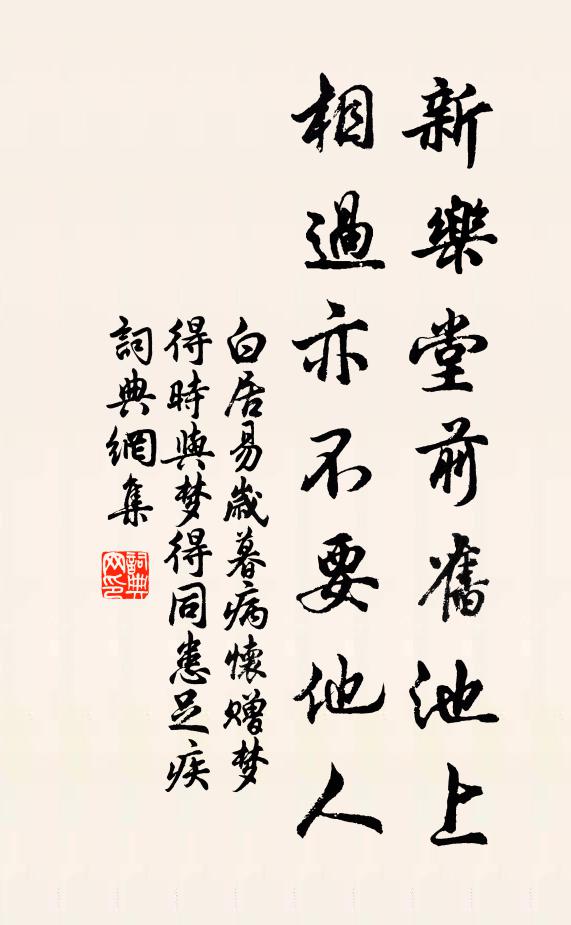 新樂堂前舊池上
相過亦不要他人
白居易歲暮病懷贈夢
得時與夢得同患足疾
詞典網集
詞典
网印